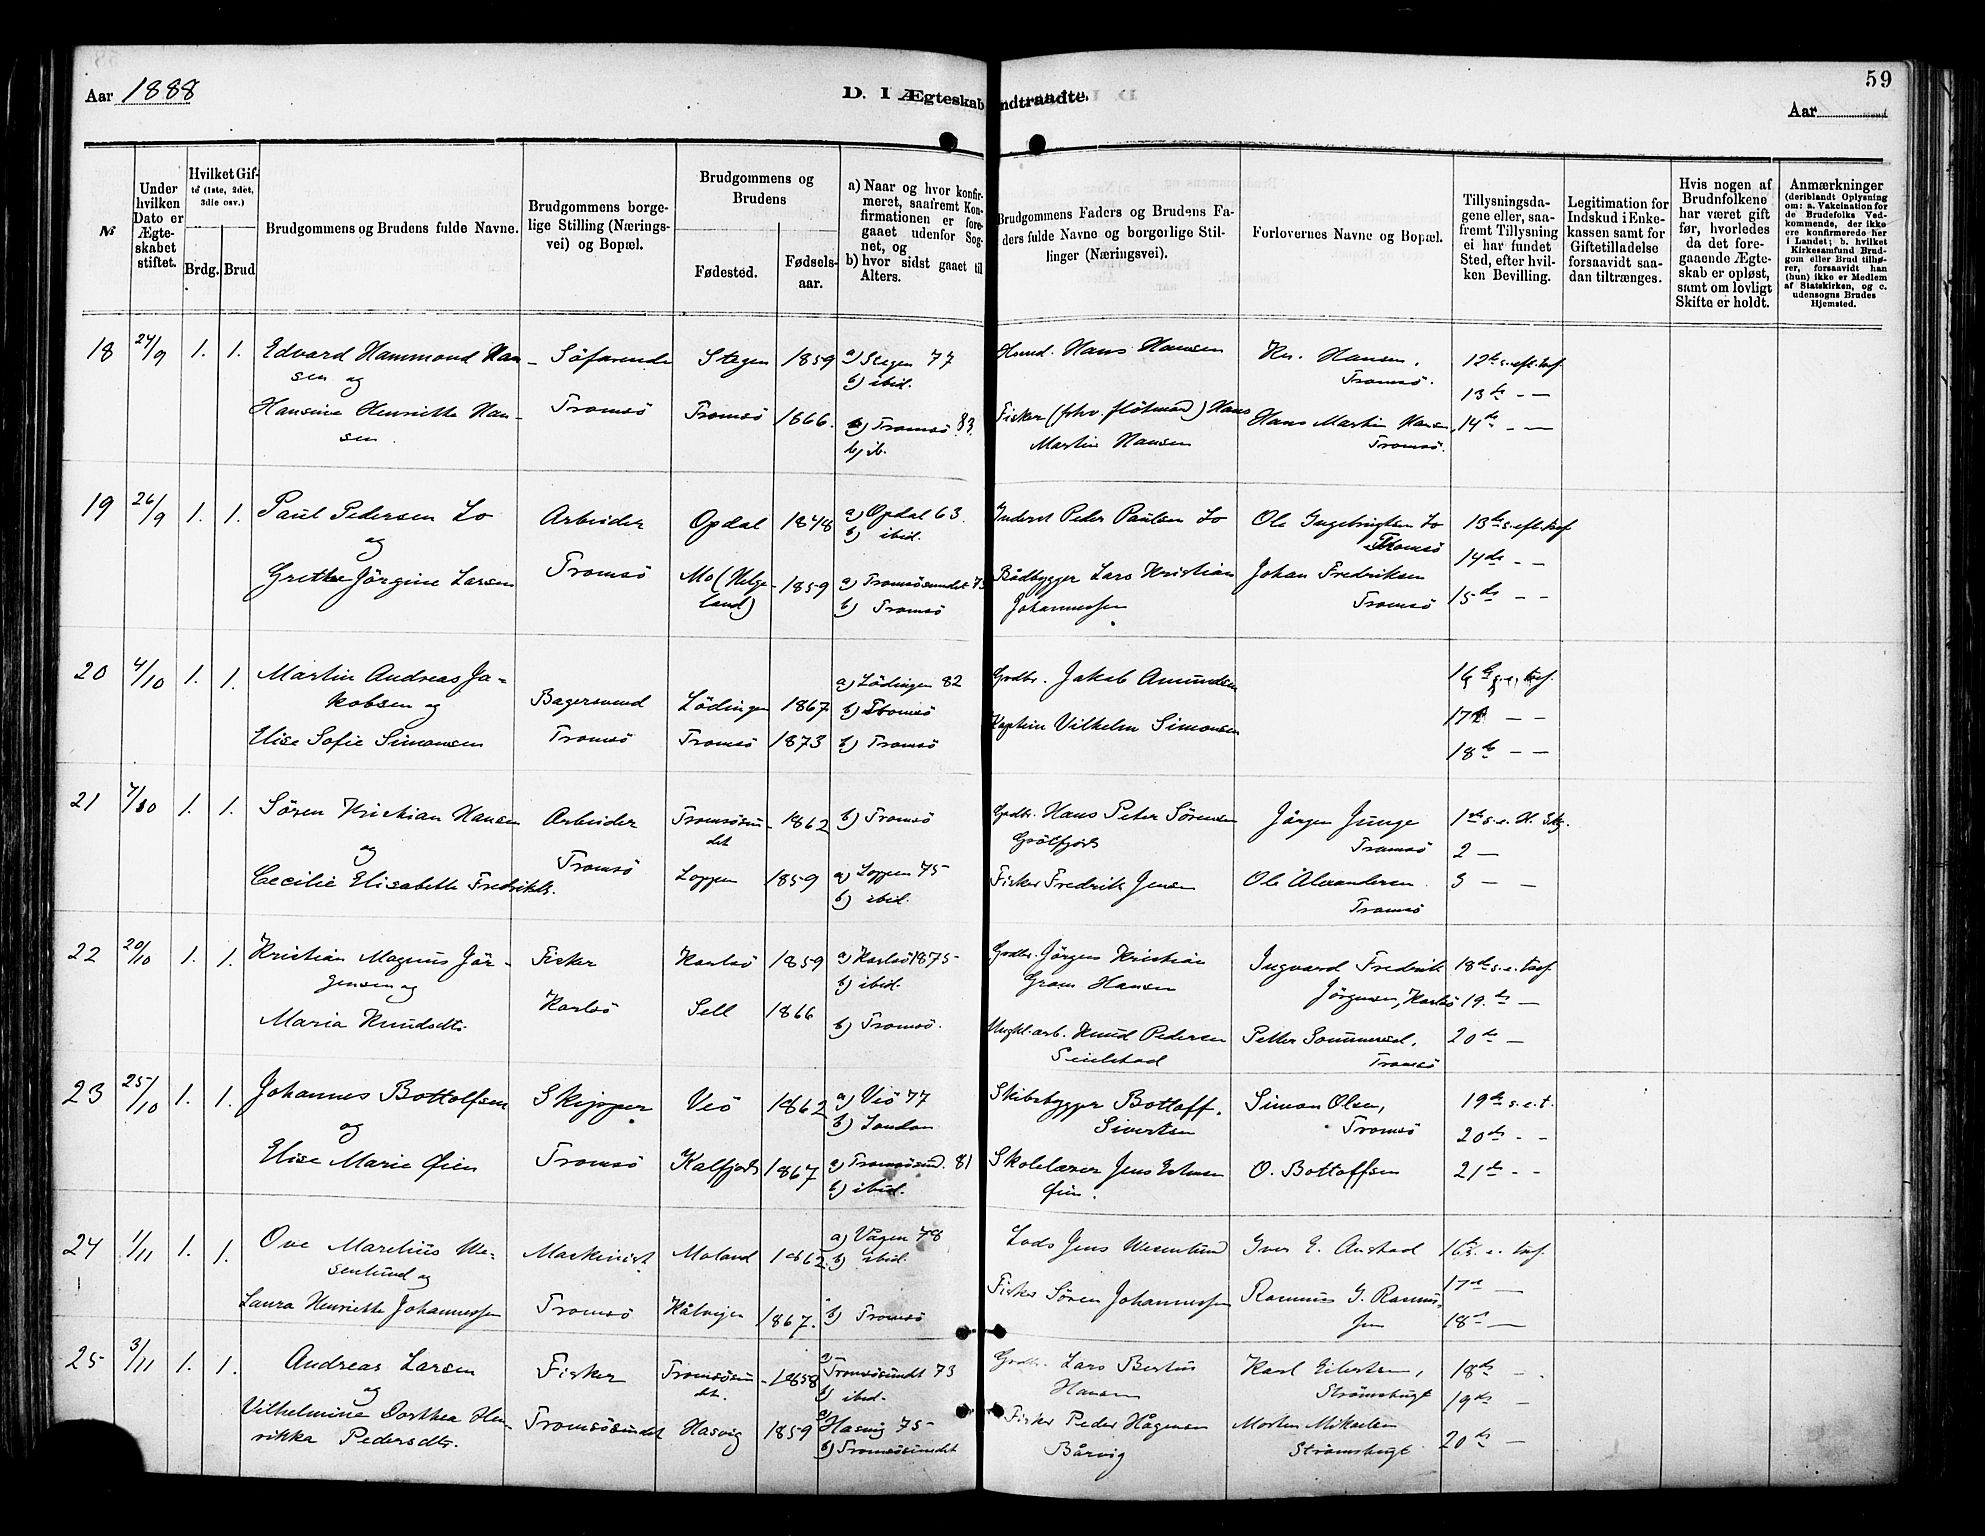 59
Aar 1888
D. I Ægteskab indtraadte.
Aar
№
Under hvilken Dato er Ægteskabet stiftet.
Hvilket Gifte (1ste, 2det, 3die osv.)
Brdg.
Brud
Brudgommens og Brudens fulde Navne.
Brudgommens borgelige Stilling (Næringsvei) og Bopæl.
Brudgommens og Brudens
Fødested.
Fødselsaar.
a) Naar og hvor konfirmeret, saafremt Konfirmationen er foregaaet udenfor Sognet, og
b) hvor sidst gaaet til Alters.
Brudgommens Faders og Brudens Faders fulde Navne og borgerlige Stillinger (Næringsvei).
Forlovernes Navne og Bopæl.
Tillysningsdagene eller, saafremt Tillysning ei har fundet Sted, efter hvilken Bevilling.
Legitimation for Indskud i Enkekassen samt for Giftetilladelse forsaavidt saadan tiltrænges.
Hvis nogen af Brudnfolkene har været gift før, hvorledes da det foregaaende Ægteskab er opløst, samt om lovligt Skifte er holdt.
Anmærkninger (deriblandt Oplysning om: a. Vakcination for de Brudefolks Vedkommende, der ikke ere konfirmerede her i Landet; b. hvilket Kirkesamfund Brudgom eller Brud tilhører, forsaavidt han (hun) ikke er Medlem af Statskirken, og c. udensogns Brudes Hjemsted.
18 24/9 1. 1. Edvard Hammond Hansen og Søfarende Stegen 1859 a) Stegen 77 b) ibid. Hmd. Hans Hansen Hr. Hansen, Tromsø. 12te s. eft. tref.
13de - -
Hansine Henriette Hansen. Tromsø Tromsø 1866. a) Tromsø 83. b) ib. Fisker (fhv. flötmand) Hans Martin Hansen Hans Martin Hansen, Tromsø. 14de - -
19 26/9 1. 1. Paul Pedersen Lo og Arbeider Opdal 1848 a) Opdal 63. b) ibid. Inderst Peder Paulsen Lo Ole Ingebrigtsen Lo Tromsø 13de s. eft. tref
14de - -
Grethe Jörgine Larsen Tromsø Mo (Helgeland) 1859 a) Tromsösundet 75 b) Tromsö Bådbygger Lars Kristian Johannessen Johan Fredriksen Tromsö 15de - -
20 4/10 1. 1. Martin Andreas Jakobsen og Bagersvend Lödingen 1867 a) Lödingen 82 b) Tromsö Grdbr. Jakob Amundsen 16de s. e. tref.
17de - -
Elise Sofie Simonsen Tromsö Tromsö 1873 b) Tromsö Kaptein Vilhelm Simonsen 18de - -
21 7/10 1. 1. Sören Kristian Hansen og Arbeider Tromsösundet 1862 b) Tromsö Grdbr. Hans Peter Sörensen Grötfjord Jörgen Junge Tromsö 1ste s. e. H.
2 -
Cecilie Elisabeth Fredriksd. Tromsö Loppen 1859 a) Loppen 75 b) ibid. Fisker Fredrik Jensen Ole Alexandersen Tromsö 3 - -
22 20/10 1. 1. Kristian Magnus Jörgensen og Fisker Karlsö 1859 a) Karlsö 1875 b) ibid. Grdbr. Jörgen Kristian Gram Hansen Ingvard Fredrik Jörgensen, Karlsö 18de s. e. tref.
19. de -
Maria Knudsdtr. Karlsö Sell 1866 b) Tromsö. Knud Pedersen Petter Sommersel, Tromsö 20de -
23 25/10 1. 1. Johannes Bottolfsen og Skipper Veö 1862 a) Veö 77 b) London Skibsbygger Bottolf Sivertsen Simon Olsen, Tromsö 19de s. e. t.
20de - -
Elise Marie Øien Tromsö Kalfjord 1867 a) Tromsösund. 81 b) ibid. Skolelærer Jens Øien. O. Bottolfsen 21de - -
24 1/11 1. 1. Ove Marelius Wesenlund og Maskinist Moland 1862 a) Vågen 78 b) ibid. Lods Jens Wesenlund Iver E. Anstad 16de s. e. tref.
17de -
Laura Henriette Johannessen Tromsö 1867. b) Tromsö Fisker Sören Johannessen Rasmus G. Rasmussen 18de -
25 3/11 1. 1. Andreas Larsen og Fisker Tromsösundet. 1858 a) Tromsösundet 73 b) ibid. Grdbr. Lars Bertus Hansen Karl Eilertsen, Strömsbugt 18de -
19de -
Vilhelmine Dorthea Henrikka Pedersdtr. Tromsösundet Hasvig 1859 a) Hasvig 75 b) Tromsösundet Fisker Peder Hågensen Bårvig Morten Mikalsen Strömsbugt 20de -